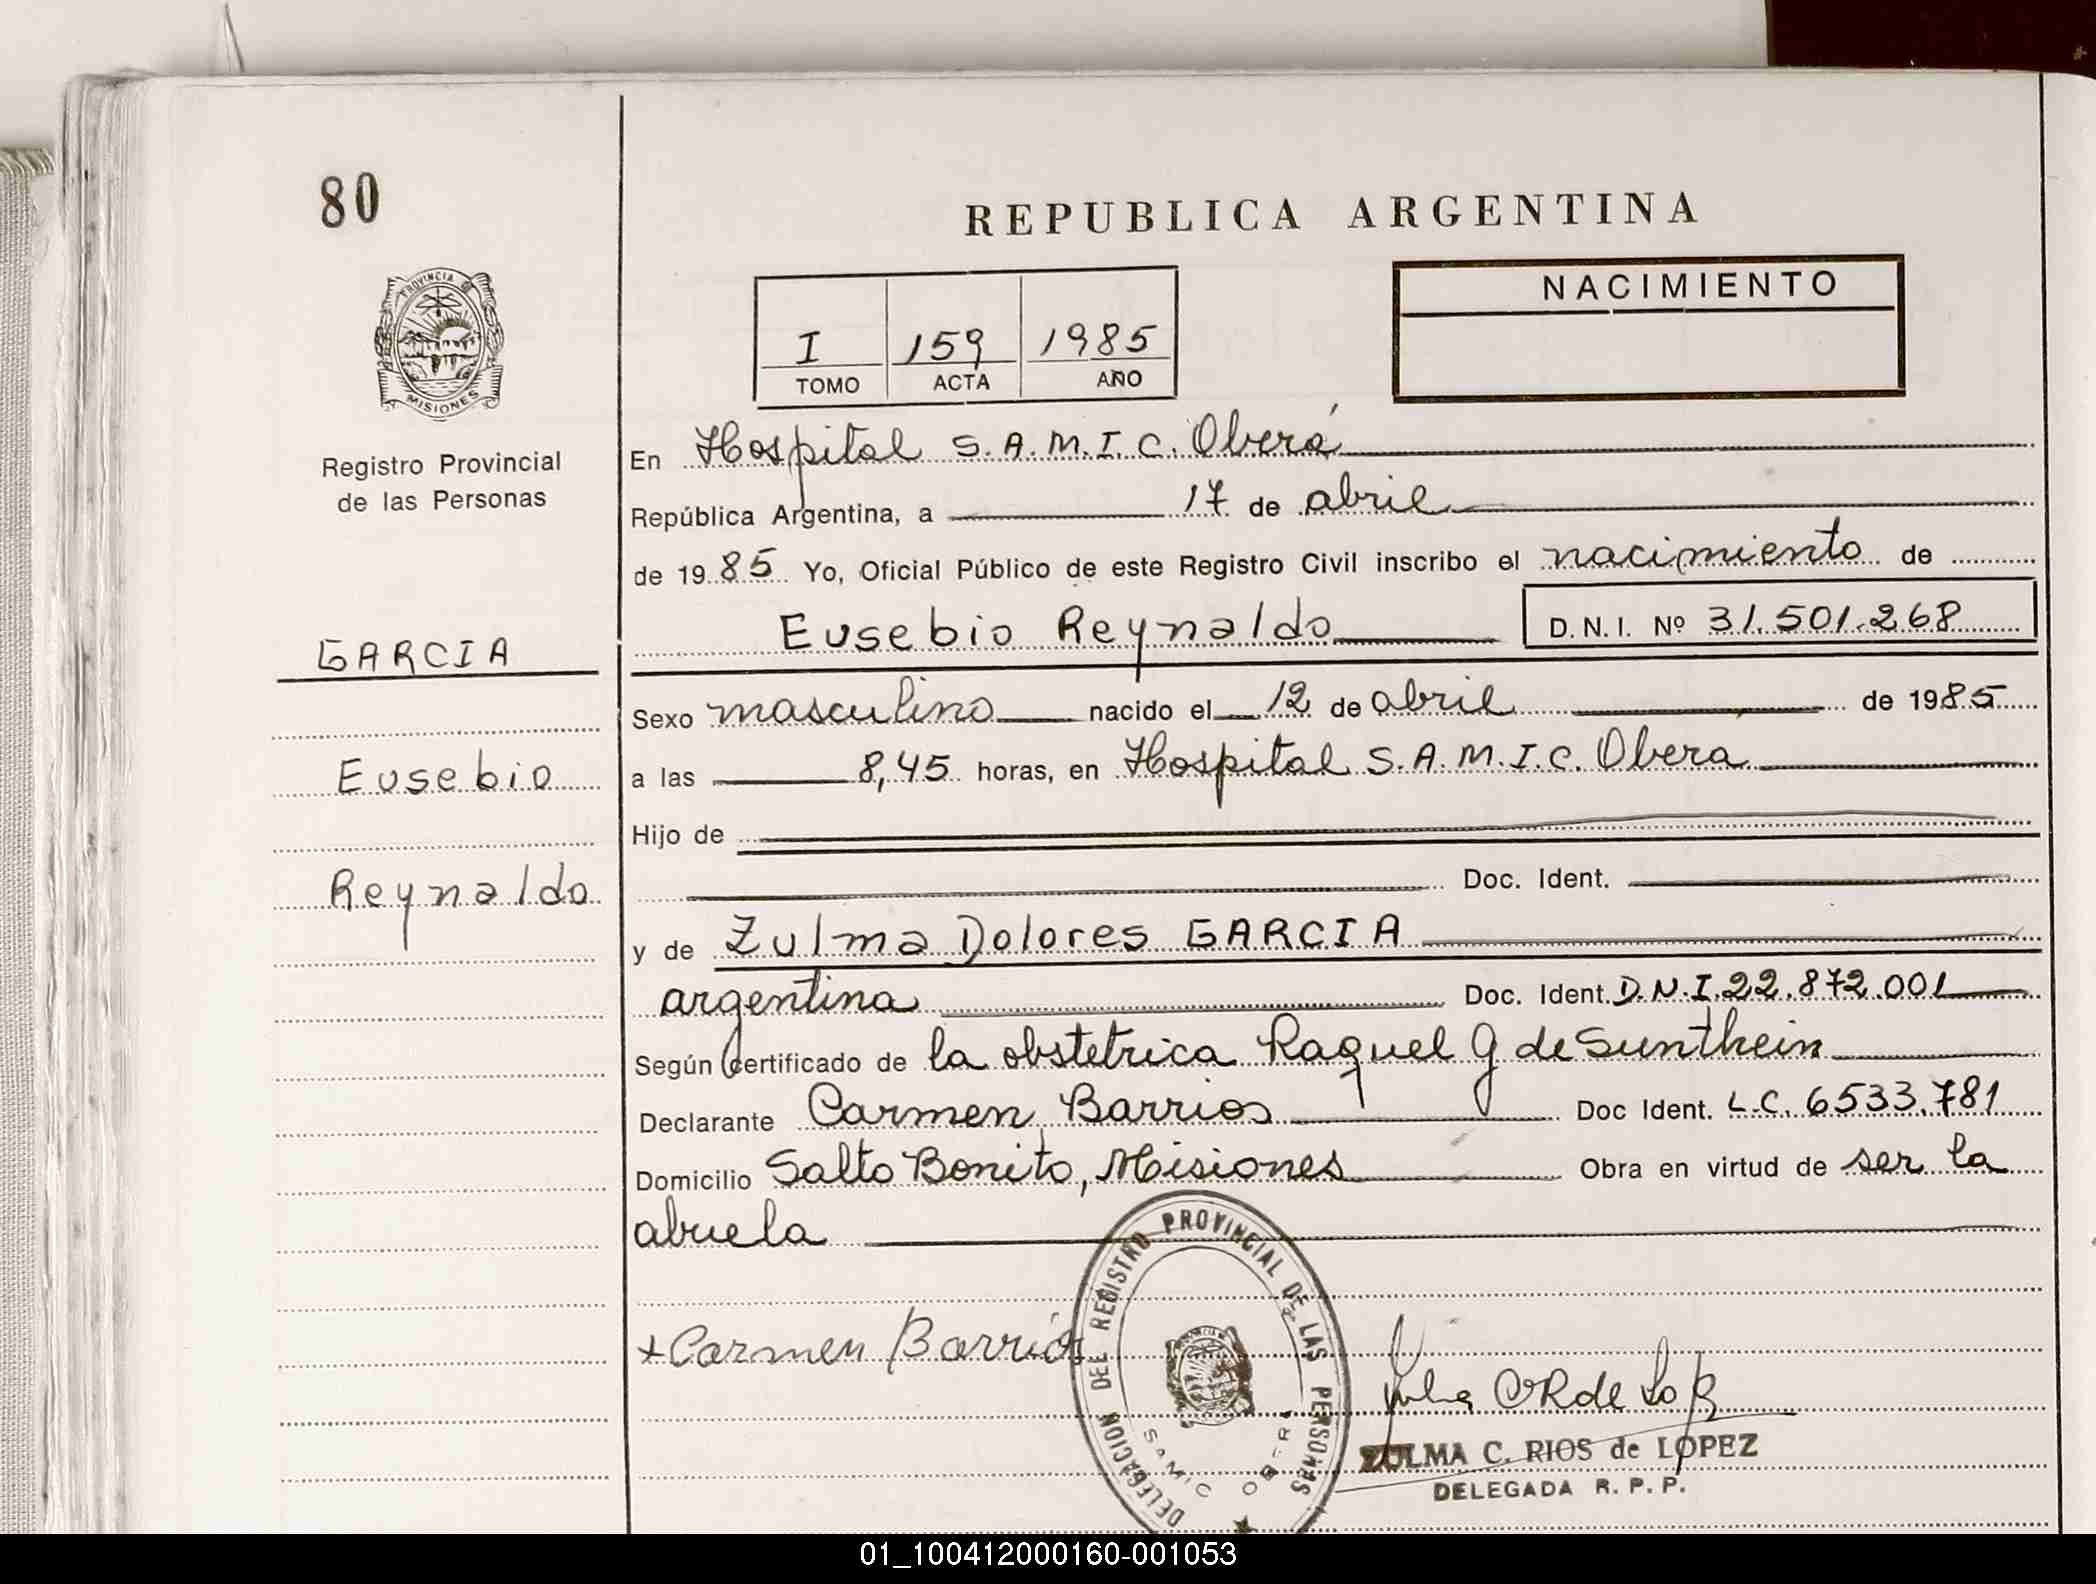 80
REPUBLICA ARGENTINA
PROVINCIA DE
MISIONES
NACIMIENTO
I 159 1985
TOMO ACTA AÑO
Registro Provincial
de las Personas
En Hospital S.A.M.I.C. Oberá
República Argentina, a 17 de abril
de 1985 Yo, Oficial Público de este Registro Civil inscribo el nacimiento de
Eusebio Reynaldo D.N.I. Nº 31.501.268
GARCIA
Sexo masculino nacido el 12 de abril de 1985
Eusebio
a las 8,45 horas, en Hospital S.A.M.I.C. Obera
Hijo de
Reynaldo
Doc. Ident.
y de Zulma Dolores GARCIA
argentina Doc. Ident. D.N.I. 22.872.001
Según certificado de la obstetrica Raquel G de Sunthein
Declarante Carmen Barrios Doc Ident. L.C. 6533.781
Domicilio Salto Bonito, Misiones Obra en virtud de ser la
abuela
DELEGACION DEL REGISTRO PROVINCIAL DE LAS PERSONAS
SAMIC OBERA
+Carmen Barrios
ZULMA C. RIOS de LOPEZ
DELEGADA R. P. P.
01_100412000160-001053